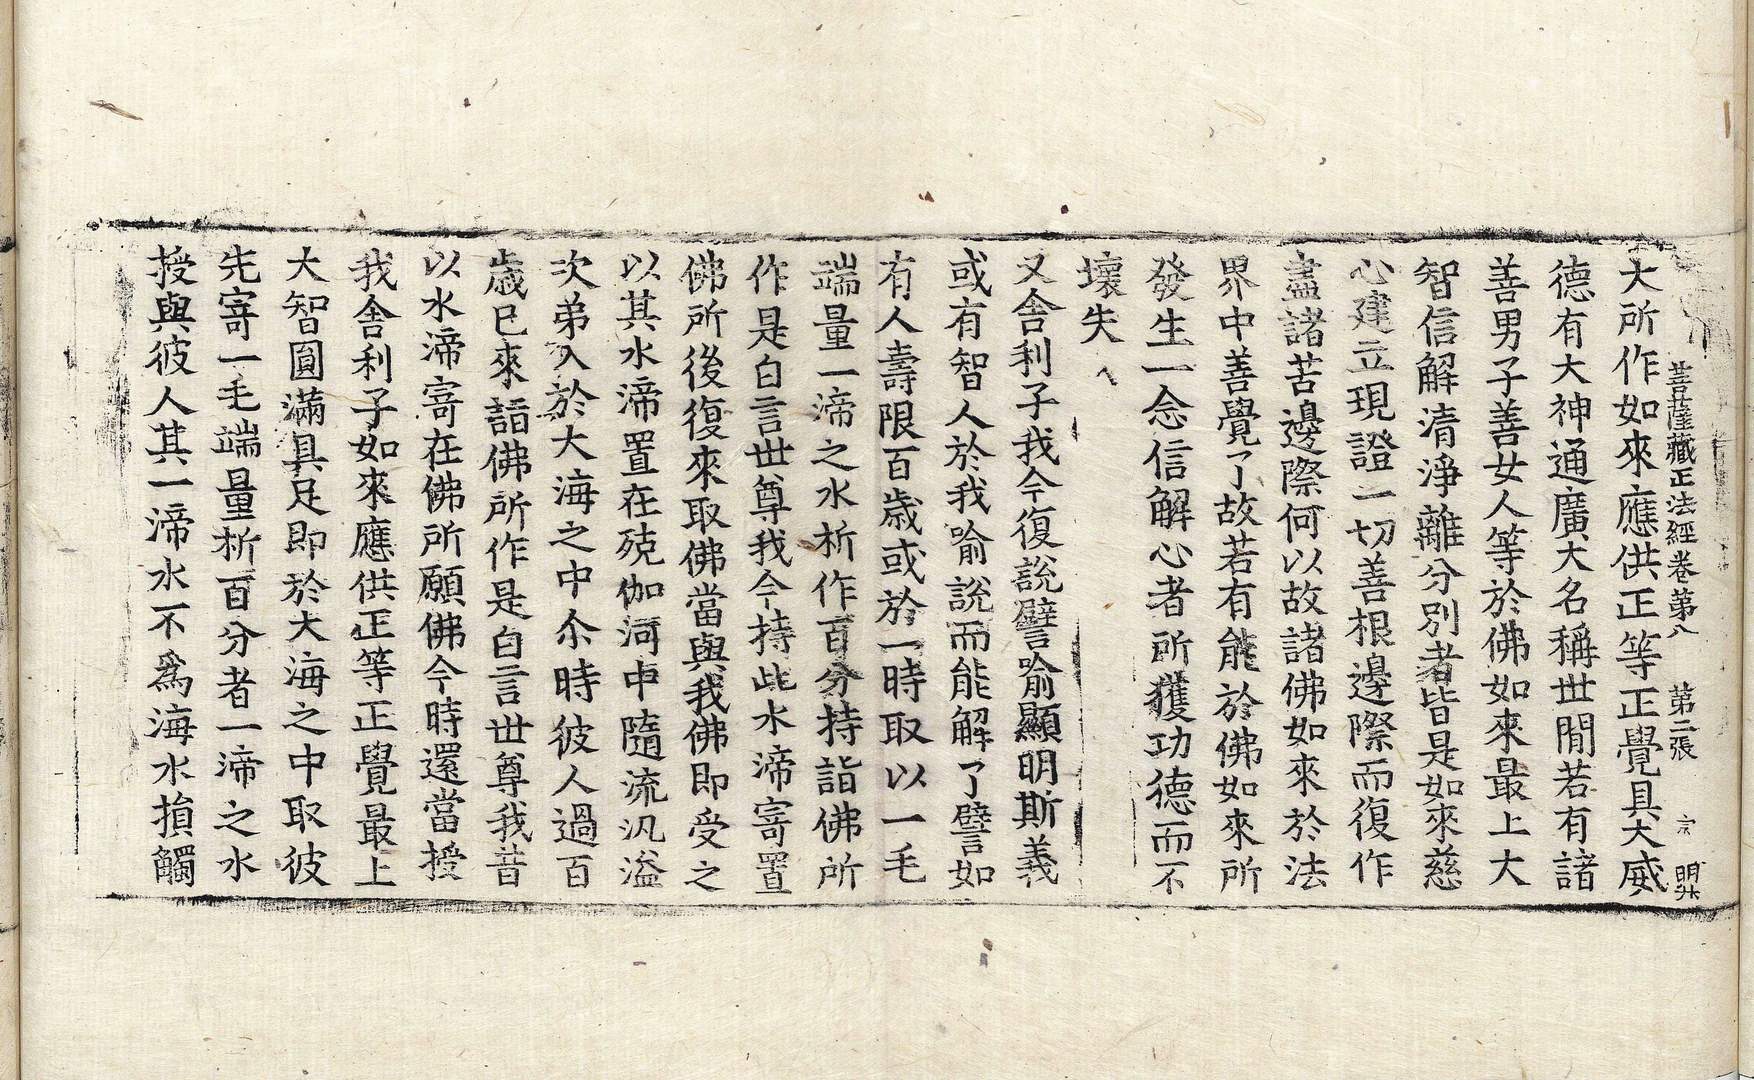 菩薩藏正法經卷第八 第二張 宗 明升
大所作如來應供正等正覺具大威
德有大神通廣大名稱世間若有諸
善男子善女人等於佛如來最上大
智信解清淨離分別者皆是如來慈
心建立現證一切善根邊際而復作
盡諸苦邊際何以故諸佛如來於法
界中善覺了故若有能於佛如來所
發生一念信解心者所獲功德而不
壞失
又舍利子我今復說譬喻顯明斯義
或有智人於我喻說而能解了譬如
有人壽限百歲或於一時取以一毛
端量一渧之水析作百分持詣佛所
作是白言世尊我今持此水渧寄置
佛所後復來取佛當與我佛即受之
以其水渧置在殑伽河中隨流汎溢
次弟入於大海之中尒時彼人過百
歲已來詣佛所作是白言世尊我昔
以水渧寄在佛所願佛今時還當授
我舍利子如來應供正等正覺最上
大智圓滿具足即於大海之中取彼
先寄一毛端量析百分者一渧之水
授與彼人其一渧水不爲海水損觸